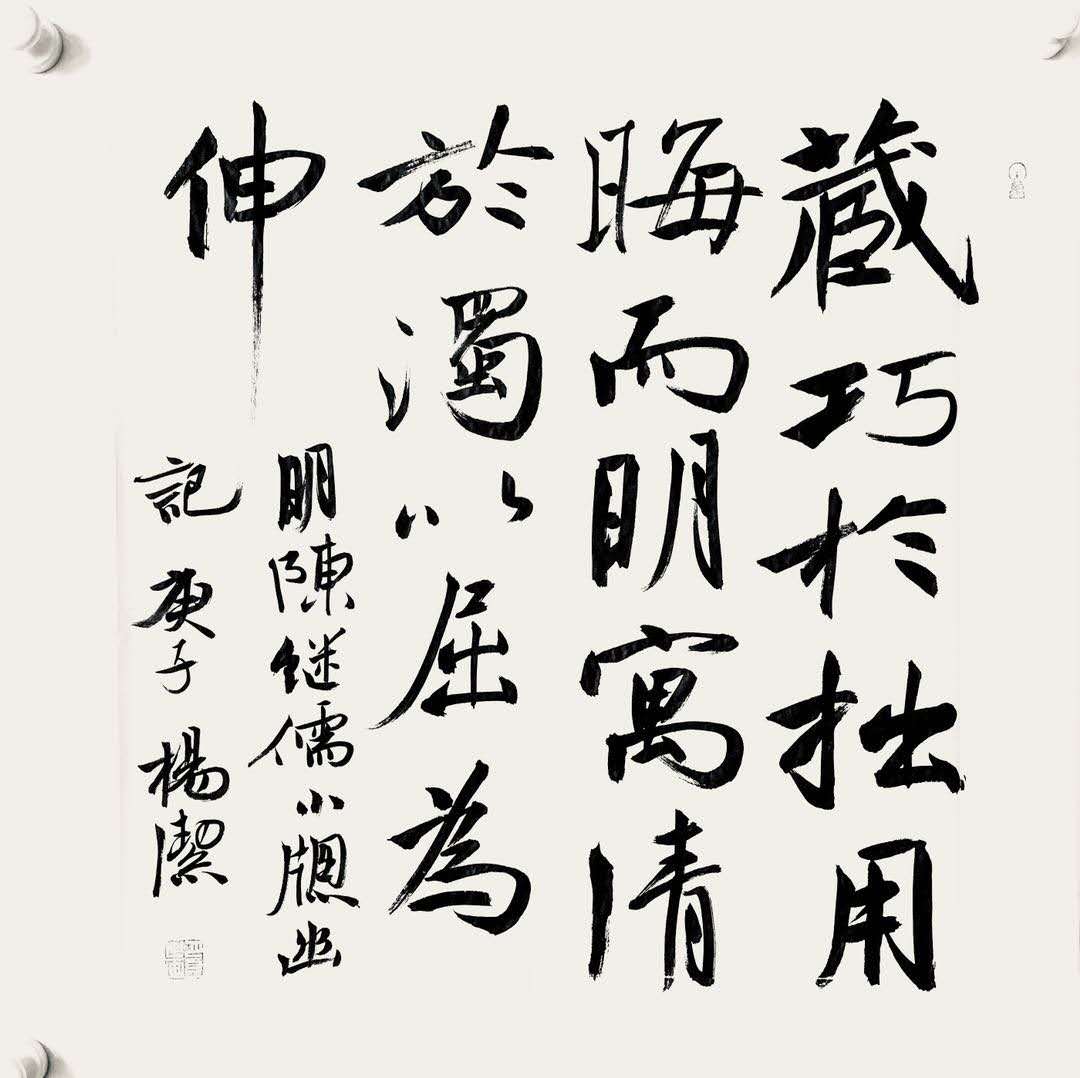 藏巧於拙用
晦而明寓清
於濁以屈為
伸
明陳继儒小牕幽
記庚子楊潔